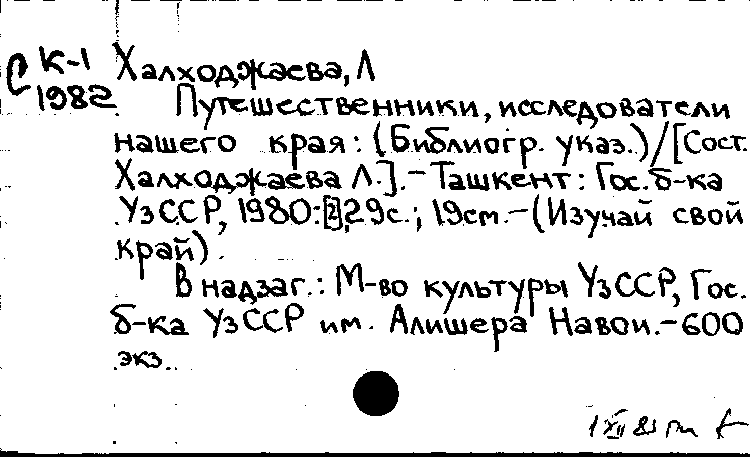 С К-1 Халходжаева, Л
1982 Путешественники, исследователи
нашего края: (Библиогр. указ.)/[Сост.
Халходжаева Л.].-Ташкент: Гос. б-ка
УзССР, 1980.-[2],29с.; 19см.-(Изучай свой
край).
В надзаг.: М-во культуры УзССР, Гос.
б-ка УзССР им. Алишера Навои.-600
экз.
1 XII 83